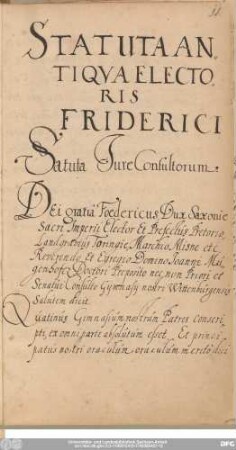 STATUTA AN
TIQVA ELECTO
RIS
FRIDERICI
Statuta Jure Consultorum.
DEi gratia Foedericus Dux Saxonie
Sacri Imperii Elector Et Prefectus Pretorio
Landgrauius Toringie, Marchio Misne etc
Reverendo Et Egregio Domino Joanni Mu
genhofer Doctori Preposito nec non Priori et
Senatui Consulto Gymnasÿ nostri Wittenburgensis
Salutem dicit.
Quatinus Gimnasium nostrum Patres conscri
pti, ex omni parte absolutum esset, Et princi
patus nostri oraculum, oraculum merito dici